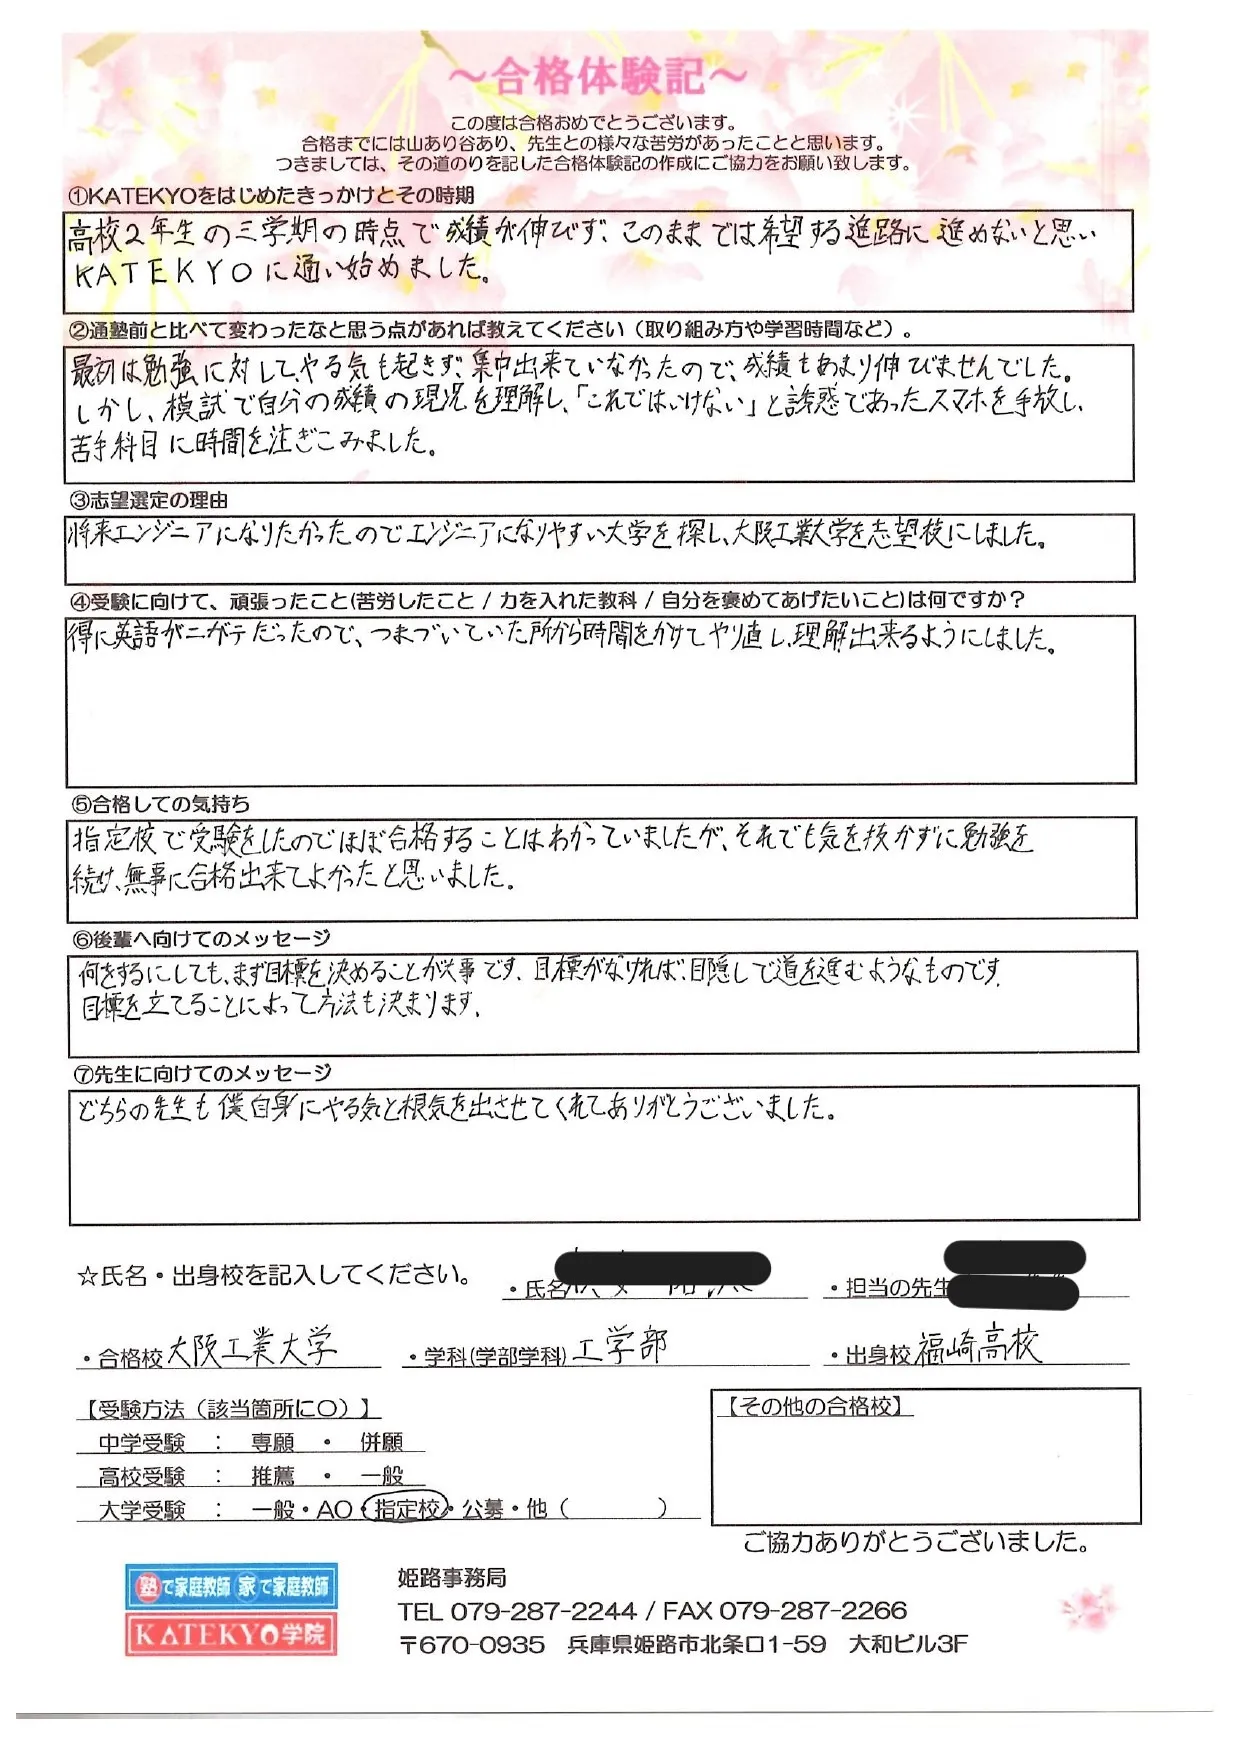 ～合格体験記～
この度は合格おめでとうございます。
合格までには山あり谷あり、先生との様々な苦労があったことと思います。
つきましては、その道のりを記した合格体験記の作成にご協力をお願い致します。
①KATEKYOをはじめたきっかけとその時期
高校2年生の三学期の時点で成績が伸びず、このままでは希望する進路に進めないと思い
KATEKYOに通い始めました。
②通塾前と比べて変わったなと思う点があれば教えてください（取り組み方や学習時間など）。
最初は勉強に対して、やる気も起きず、集中出来ていなかったので、成績もあまり伸びませんでした。
しかし、模試で自分の成績の現況を理解し、「これではいけない」と誘惑であったスマホを手放し、
苦手科目に時間を注ぎこみました。
③志望選定の理由
将来エンジニアになりたかったのでエンジニアになりやすい大学を探し、大阪工業大学を志望校にしました。
④受験に向けて、頑張ったこと(苦労したこと / 力を入れた教科 / 自分を褒めてあげたいこと)は何ですか？
得に英語がニガテだったので、つまづいていた所から時間をかけてやり直し、理解出来るようにしました。
⑤合格しての気持ち
指定校で受験をしたのでほぼ合格することはわかっていましたが、それでも気を抜かずに勉強を
続け、無事に合格出来てよかったと思いました。
⑥後輩へ向けてのメッセージ
何をするにしても、まず目標を決めることが大事です。目標がなければ、目隠しで道を進むようなものです。
目標を立てることによって方法も決まります。
⑦先生に向けてのメッセージ
どちらの先生も僕自身にやる気と根気を出させてくれてありがとうございました。
☆氏名・出身校を記入してください。
・氏名
・担当の先生
・合格校 大阪工業大学
・学科(学部学科) 工学部
・出身校 福崎高校
【受験方法（該当箇所に〇）】
中学受験 ： 専願 ・ 併願
高校受験 ： 推薦 ・ 一般
大学受験 ： 一般・AO・指定校・公募・他（ ）
【その他の合格校】
ご協力ありがとうございました。
塾で家庭教師 家で家庭教師
KATEKYO学院
姫路事務局
TEL 079-287-2244 / FAX 079-287-2266
〒670-0935 兵庫県姫路市北条口1-59 大和ビル3F